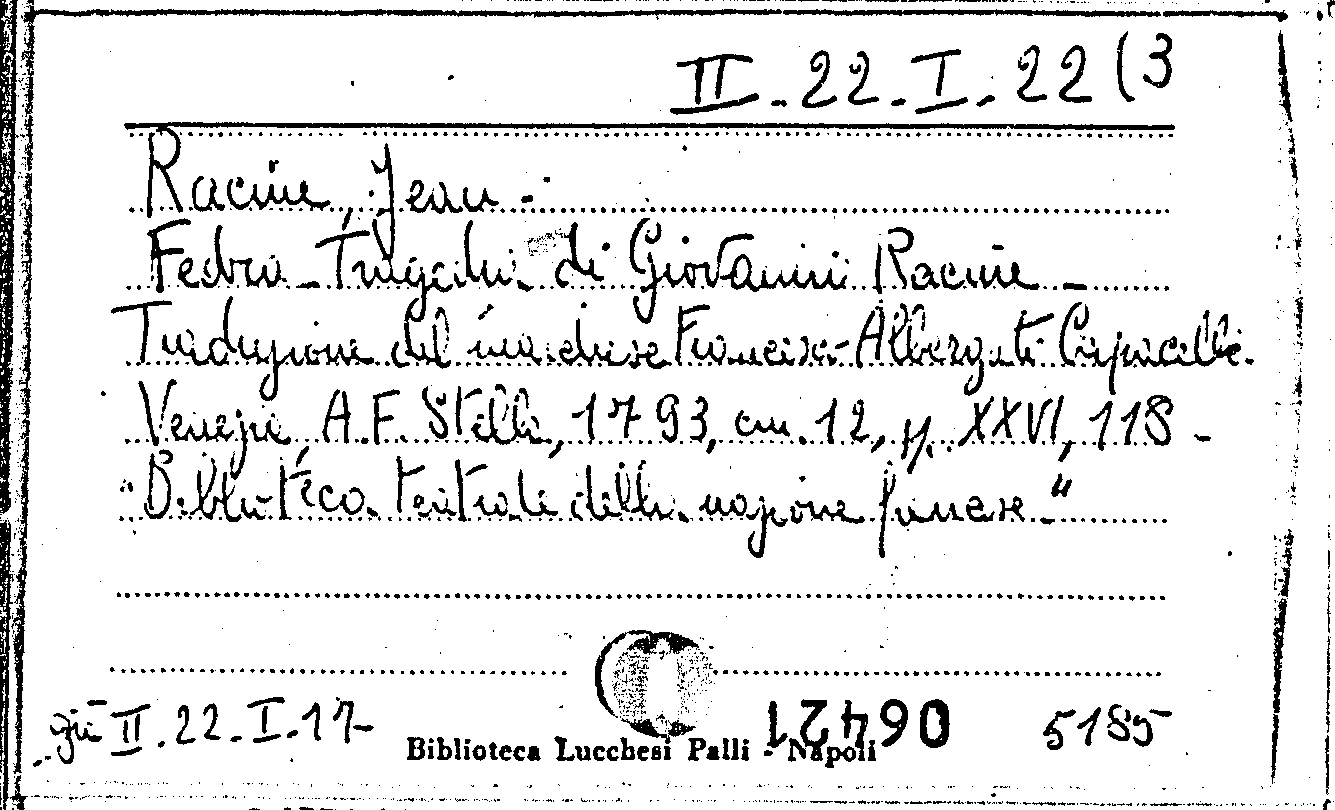 II. 22. I. 22 (3
Racine, Jean -
Fedra - Tragedia di Giovanni Racine -
Traduzione del marchese Francesco Albergati Capacelli.
Venezia, A. F. Stella, 1793, cm. 12, p. XXVI, 118 -
"Biblioteca teatrale della nazione francese"
già II. 22. I. 17
06421
5185
Biblioteca Lucchesi Palli - Napoli